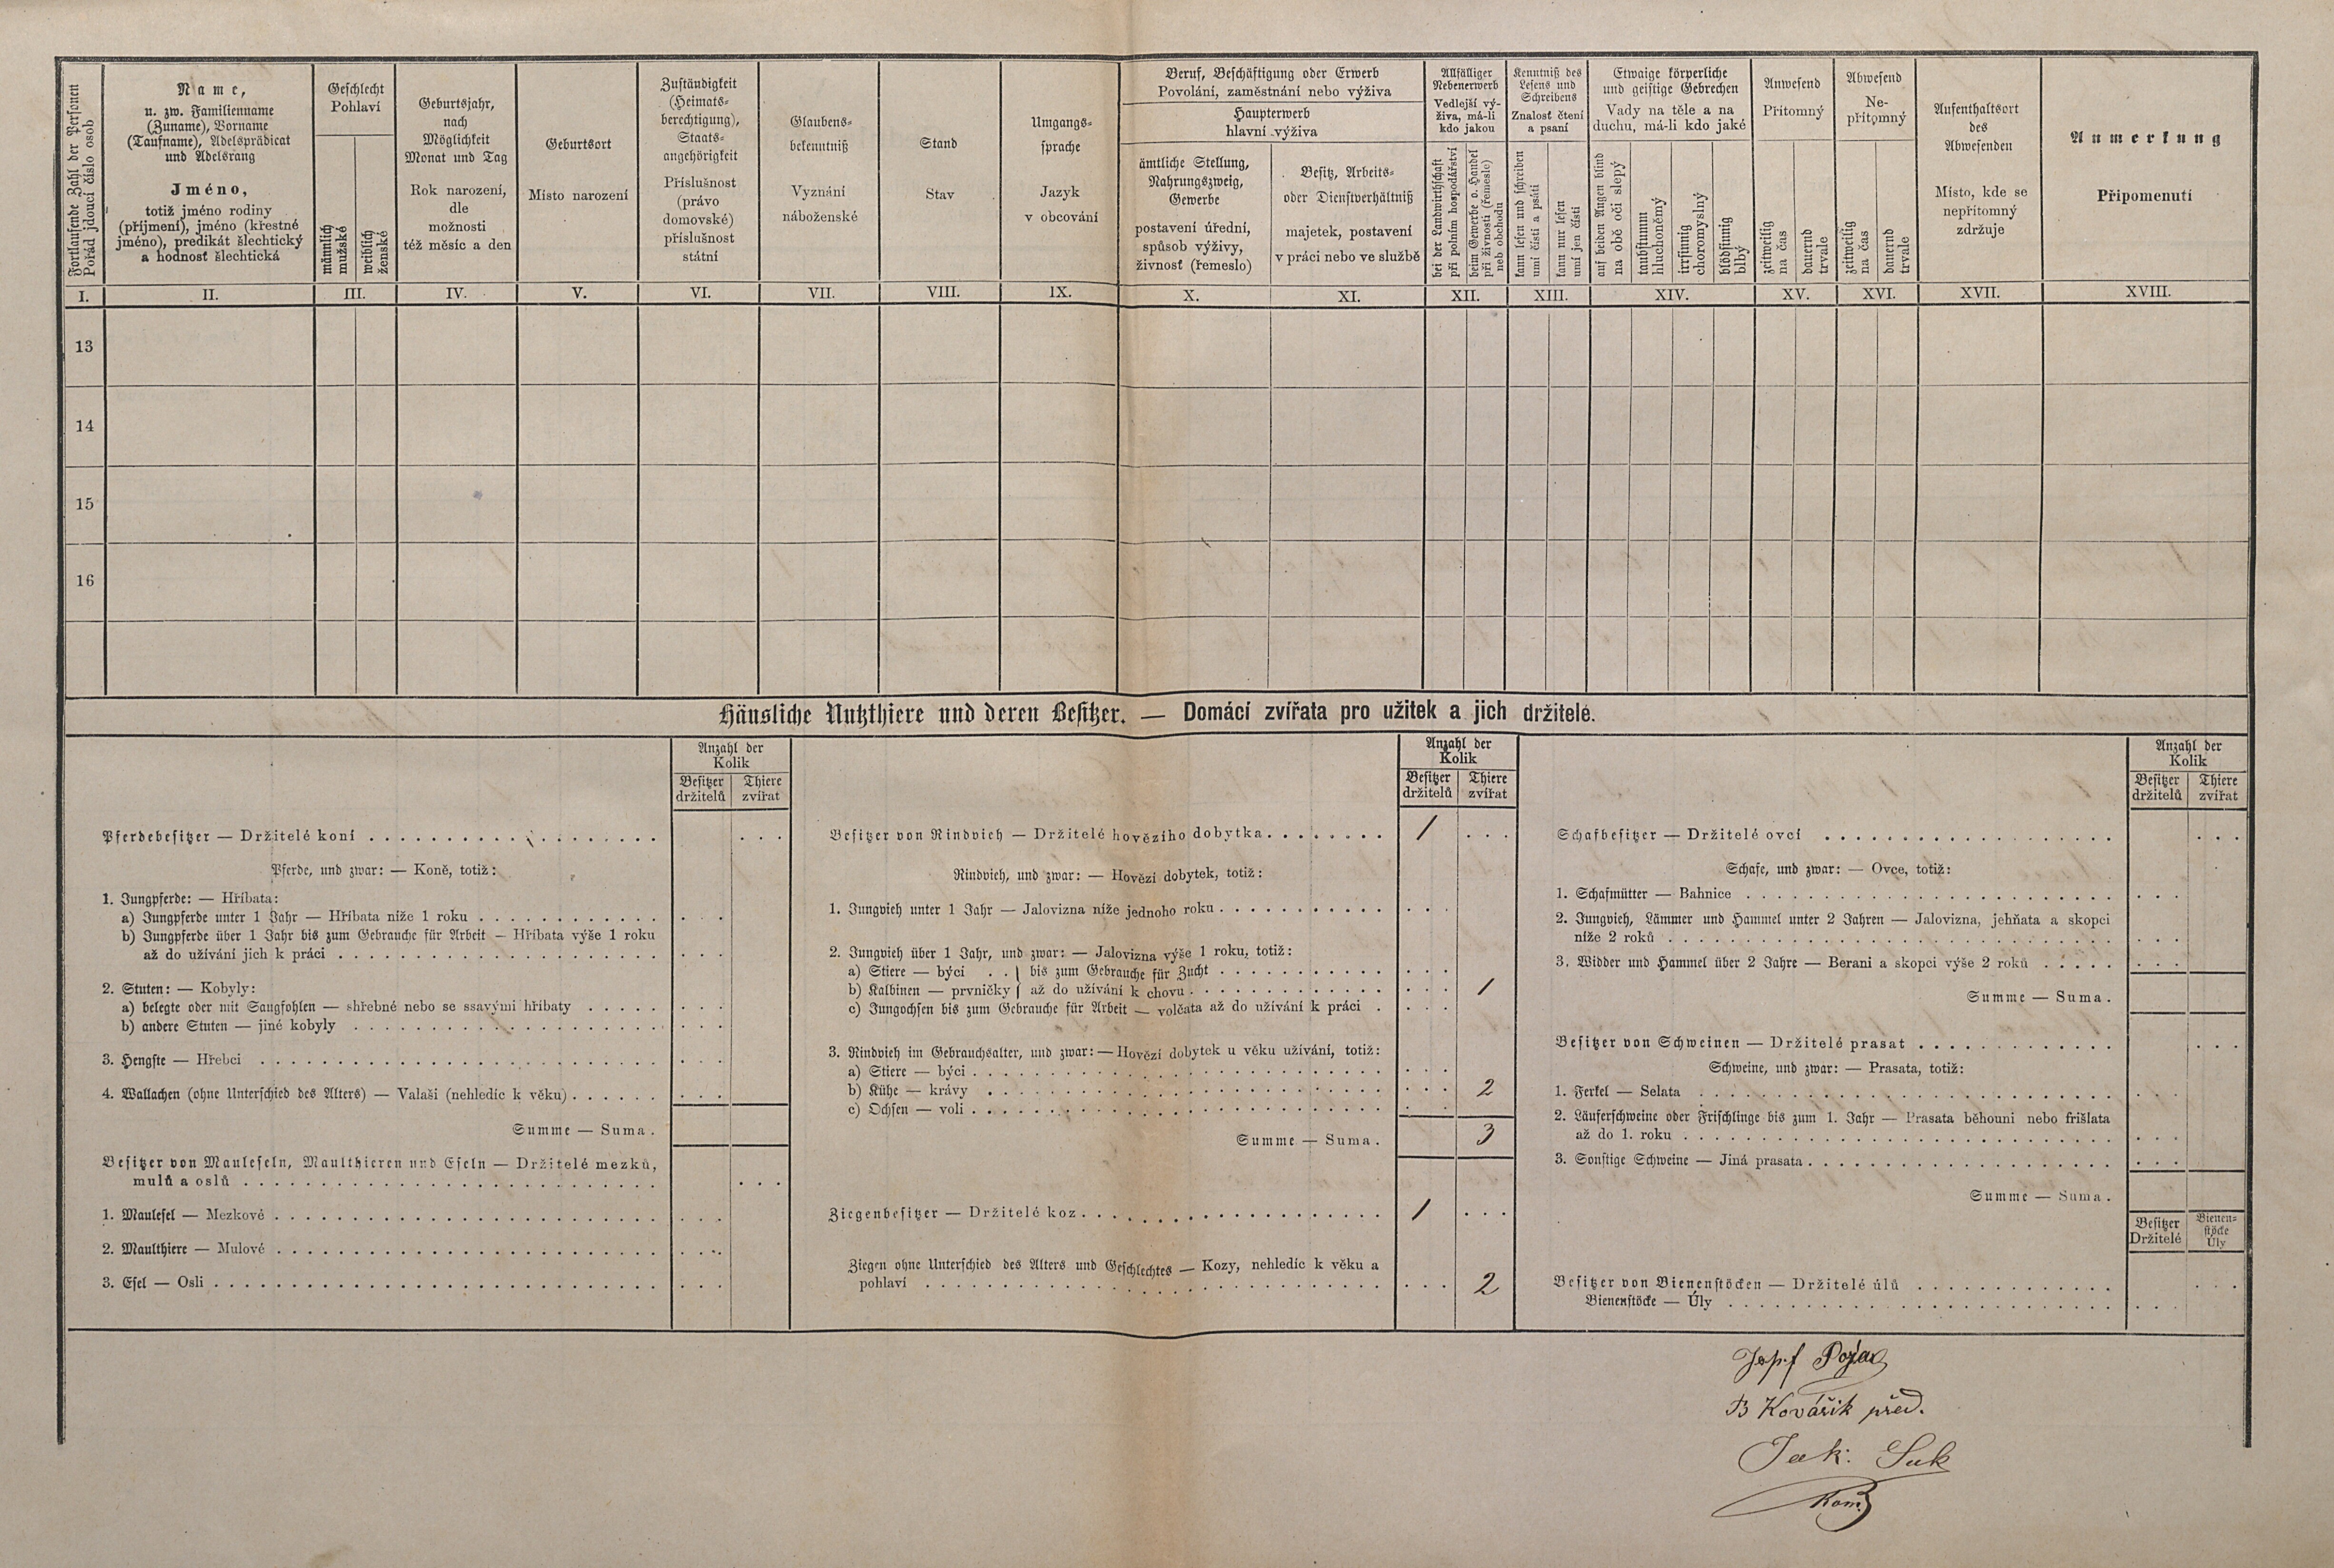 Fortlaufende Zahl der Personen
Pořád jdoucí číslo osob
Name,
u. zw. Familienname
(Zuname), Vorname
(Taufname), Adelsprädicat
und Adelsrang
Jméno,
totiž jméno rodiny
(příjmení), jméno (křestné
jméno), predikát šlechtický
a hodnosť šlechtická
Geschlecht
Pohlaví
männlich
mužské
weiblich
ženské
Geburtsjahr,
nach
Möglichkeit
Monat und Tag
Rok narození,
dle
možnosti
též měsíc a den
Geburtsort
Místo narození
Zuständigkeit
(Heimats-
berechtigung),
Staats-
angehörigkeit
Příslušnost
(právo
domovské)
příslušnost
státní
Glaubens-
bekenntniß
Vyznání
náboženské
Stand
Stav
Umgangs-
sprache
Jazyk
v obcování
Beruf, Beschäftigung oder Erwerb
Povolání, zaměstnání nebo výživa
Haupterwerb
hlavní výživa
ämtliche Stellung,
Nahrungszweig,
Gewerbe
postavení úřední,
spůsob výživy,
živnosť (řemeslo)
Besitz, Arbeits-
oder Dienstverhältniß
majetek, postavení
v práci nebo ve službě
Allfälliger
Nebenerwerb
Vedlejší vý-
živa, má-li
kdo jakou
bei der Landwirthschaft
při polním hospodářství
beim Gewerbe o. Handel
při živnosti (řemesle)
neb obchodu
Kenntniß des
Lesens und
Schreibens
Znalosť čtení
a psaní
kann lesen und schreiben
umí čísti a psáti
kann nur lesen
umí jen čísti
Etwaige körperliche
und geistige Gebrechen
Vady na těle a na
duchu, má-li kdo jaké
auf beiden Augen blind
na obě oči slepý
taubstumm
hluchoněmý
irrsinnig
choromyslný
blödsinnig
blbý
Anwesend
Přítomný
zeitweilig
na čas
dauernd
trvale
Abwesend
Ne-
přítomný
zeitweilig
na čas
dauernd
trvale
Aufenthaltsort
des
Abwesenden
Místo, kde se
nepřítomný
zdržuje
Anmerkung
Připomenutí
I. II. III. IV. V. VI. VII. VIII. IX. X. XI. XII. XIII. XIV. XV. XVI. XVII. XVIII.
13
14
15
16
Häusliche Nutzthiere und deren Besitzer. — Domácí zvířata pro užitek a jich držitelé.
Anzahl der
Kolik
Besitzer
držitelů
Thiere
zvířat
Pferdebesitzer — Držitelé koní
Pferde, und zwar: — Koně, totiž:
1. Jungpferde: — Hříbata:
a) Jungpferde unter 1 Jahr — Hříbata níže 1 roku
b) Jungpferde über 1 Jahr bis zum Gebrauche für Arbeit — Hříbata výše 1 roku
až do užívání jich k práci
2. Stuten: — Kobyly:
a) belegte oder mit Saugfohlen — shřebné nebo se ssavými hříbaty
b) andere Stuten — jiné kobyly
3. Hengste — Hřebci
4. Wallachen (ohne Unterschied des Alters) — Valaši (nehledíc k věku)
Summe — Suma.
Besitzer von Mauleseln, Maulthieren und Eseln — Držitelé mezků,
mulů a oslů
1. Maulesel — Mezkové
2. Maulthiere — Mulové
3. Esel — Osli
Anzahl der
Kolik
Besitzer
držitelů
Thiere
zvířat
Besitzer von Rindvieh — Držitelé hovězího dobytka 1
Rindvieh, und zwar: — Hovězí dobytek, totiž:
1. Jungvieh unter 1 Jahr — Jalovizna níže jednoho roku
2. Jungvieh über 1 Jahr, und zwar: — Jalovizna výše 1 roku, totiž:
a) Stiere — býci . . } bis zum Gebrauche für Zucht
b) Kalbinen — prvničky } až do užívání k chovu 1
c) Jungochsen bis zum Gebrauche für Arbeit — volčata až do užívání k práci
3. Rindvieh im Gebrauchsalter, und zwar: — Hovězí dobytek u věku užívání, totiž:
a) Stiere — býci
b) Kühe — krávy 2
c) Ochsen — voli
Summe — Suma. 3
Ziegenbesitzer — Držitelé koz 1
Ziegen ohne Unterschied des Alters und Geschlechtes — Kozy, nehledíc k věku a
pohlaví 2
Anzahl der
Kolik
Besitzer
držitelů
Thiere
zvířat
Schafbesitzer — Držitelé ovcí
Schafe, und zwar: — Ovce, totiž:
1. Schafmütter — Bahnice
2. Jungvieh, Lämmer und Hammel unter 2 Jahren — Jalovizna, jehňata a skopci
níže 2 roků
3. Widder und Hammel über 2 Jahre — Berani a skopci výše 2 roků
Summe — Suma.
Besitzer von Schweinen — Držitelé prasat
Schweine, und zwar: — Prasata, totiž:
1. Ferkel — Selata
2. Läuferschweine oder Frischlinge bis zum 1. Jahr — Prasata běhouni nebo frišlata
až do 1. roku
3. Sonstige Schweine — Jiná prasata
Summe — Suma.
Besitzer
Držitelé
Bienen-
stöcke
Úly
Besitzer von Bienenstöcken — Držitelé úlů
Bienenstöcke — Úly
B Kovářik před.
Jak: Suk
Kom.